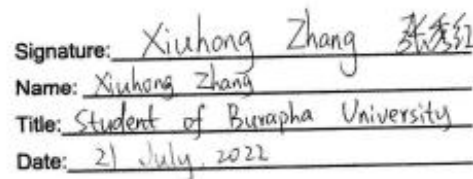 Signature: Xiuhong Zhang 张秀红
Name: Xiuhong Zhang
Title: Student of Burapha University
Date: 21 July. 2022